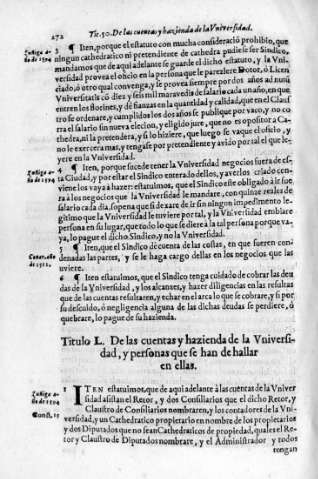 272 Tit.50. De las cuentas y hazienda de la Vniversidad.
Zuñiga a-
ño de 1594
3 ¶ Iten, porque el estatuto con mucha consideració prohibio, que
ningun cathedratico ni pretendiente de cathedra pudiese ser Sindico,
mandamos que de aqui adelante se guarde el dicho estatuto, y la Vni-
versidad provea el oficio en la persona que le pareziere Dotor, ó Licen
ciado, ó otro qual convenga, y se provea siempre por dos años ad nutú
Vniversitatis có dies y seis mil moravedis de salario cada un año, en que
entren los florines, y dé fianzas en la quantidad y calidad, que en el Claus
tro se ordenare, y cumplidos los dos años se publique por vaco, y no co
rra el salario sin nueva eleccion, y eligido jure, que no es opositor a Ca-
thedra, ni la pretendera, y si lo hiziere, que luego se vaque el oficio, y
no le exerzera mas, y tengase por pretendiente y avido por tal el que le-
yere en la Vniversidad.
Zuñiga a-
ño de 1594
4 ¶ Iten, porque sucede tener la Vniversidad negocios fuera de es-
ta Ciudad, y por estar el Sindico enterado dellos, y averlos criado con-
viene los vaya á hazer: estatuimos, que el Sindico esté obligado à ir fue
ra á los negocios que la Vniversidad le mandare, con quinze reales de
salario cada dia, so pena que si dexare de ir sin ningun impedimento le-
gitimo que la Vniversidad le tuviere por tal, y la Vniversidad embiare
persona en su lugar, que todo lo que se diere a la tal persona porque va-
ya, lo pague el dicho Sindico, y no la Vniversidad.
5 ¶ Iten, que el Sindico dé cuenta de las costas, en que fueren con
denadas las partes, y se le haga cargo dellas en los negocios que las
uviere.
6 ¶ Iten estatuimos, que el Sindico tenga cuidado de cobrar las deu
das de la Vniversidad, y los alcanzes, y hazer diligencias en las resultas
que de las cuentas resultaren, y echar en el arca lo que se cobrare, y si por
su descuido, ó negligencia alguna de las dichas deudas se perdiere, ó
quebrare, lo pague de su hazienda.
Titulo L. De las cuentas y hazienda de la Vniversi-
dad, y personas que se han de hallar
en ellas.
Zuñiga a-
ño de 1594
Const. 15
1 ITEN estatuimos, que de aqui adelante á las cuentas de la Vniver
sidad asistan el Retor, y dos Consiliarios que el dicho Retor, y
Claustro de Consiliarios nombraren, y los contadores de la Vni-
versidad, y un Cathedratico propietario en nombre de los propietarios
y dos Diputados que no sean Cathedraticos de propiedad, quales el Re-
tor y Claustro de Diputados nombrare, y el Administrador y todos
tengan